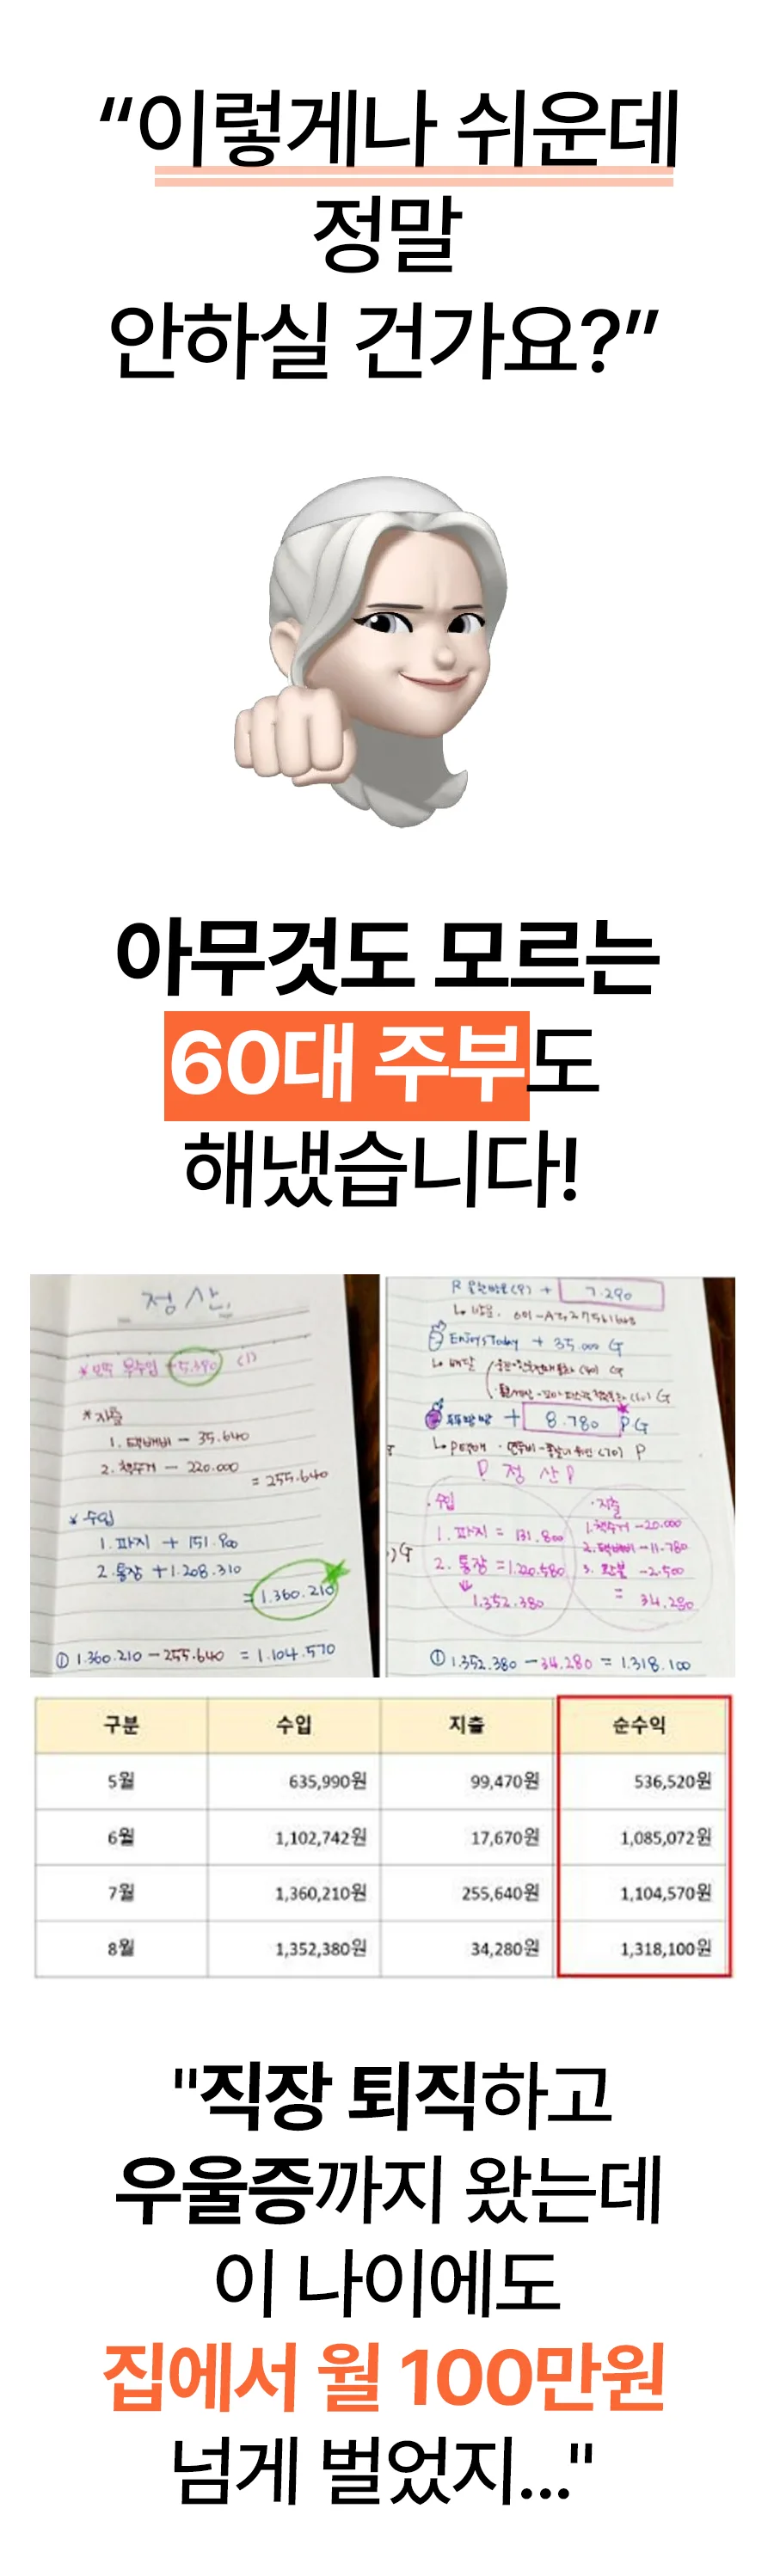 “이렇게나 쉬운데
정말
안하실 건가요?”
아무것도 모르는
60대 주부도
해냈습니다!
정산.
5,390 (1)
*지출
1. 택배비 - 35.640
2. 책수거 - 220.000
= 255.640
* 수입
1. 파지 + 151.900
2. 통장 + 1.208.310
= 1.360.210
① 1.360.210 - 255.640 = 1.104.570
+ 7.290
Enjoys Today + 35.000 G
+ 8.780 P G
정산
·수입
1. 파지 = 131.800
2. 통장 = 1.220.580
1.352.380
·지출
1. 책수거 -20.000
2. 택배비 -11.780
3. -2.500
= 34.280
① 1.352.380 - 34.280 = 1.318.100
구분 수입 지출 순수익
5월 635,990원 99,470원 536,520원
6월 1,102,742원 17,670원 1,085,072원
7월 1,360,210원 255,640원 1,104,570원
8월 1,352,380원 34,280원 1,318,100원
"직장 퇴직하고
우울증까지 왔는데
이 나이에도
집에서 월 100만원
넘게 벌었지..."